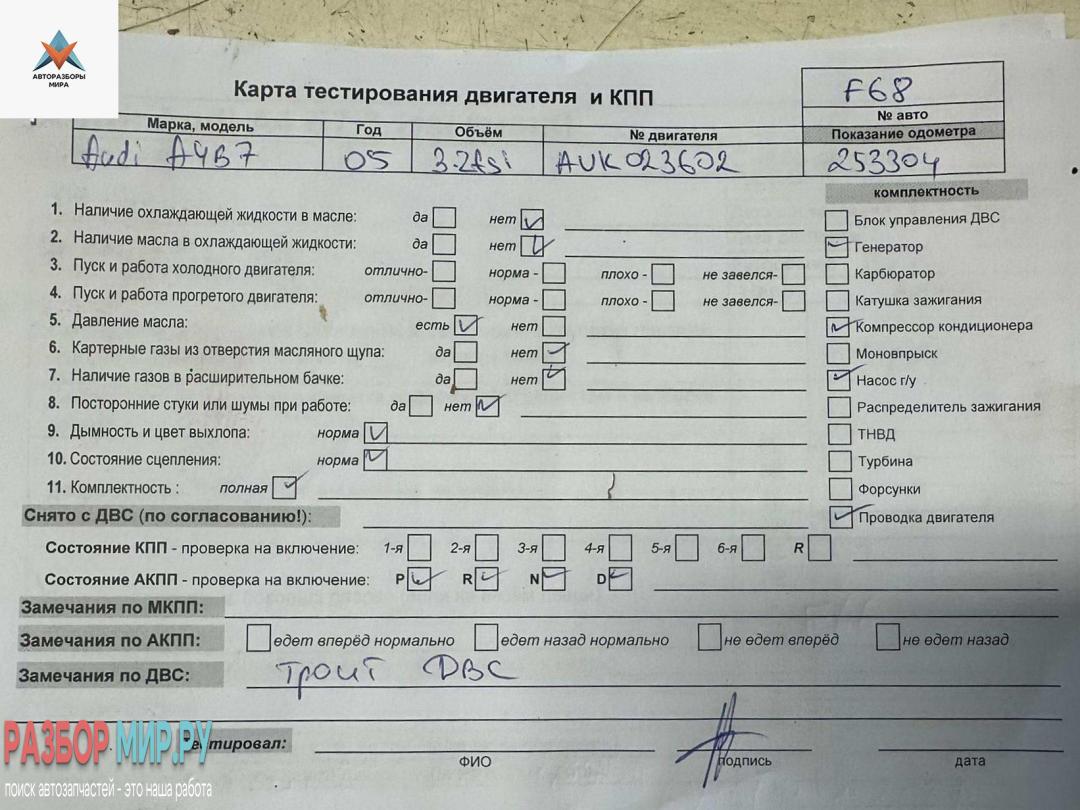 АВТОРАЗБОРЫ
МИРА
Карта тестирования двигателя и КПП
F68
№ авто
Марка, модель Год Объём № двигателя Показание одометра
Audi A4B7 05 3.2fsi AUK023602 253304
комплектность
1. Наличие охлаждающей жидкости в масле: да нет
Блок управления ДВС
2. Наличие масла в охлаждающей жидкости: да нет
Генератор
3. Пуск и работа холодного двигателя: отлично- норма - плохо - не завелся-
Карбюратор
4. Пуск и работа прогретого двигателя: отлично- норма - плохо - не завелся-
Катушка зажигания
5. Давление масла: есть нет
Компрессор кондиционера
6. Картерные газы из отверстия масляного щупа: да нет
Моновпрыск
7. Наличие газов в расширительном бачке: да нет
Насос г/у
8. Посторонние стуки или шумы при работе: да нет
Распределитель зажигания
9. Дымность и цвет выхлопа: норма
ТНВД
10. Состояние сцепления: норма
Турбина
11. Комплектность : полная
Форсунки
Снято с ДВС (по согласованию!):
Проводка двигателя
Состояние КПП - проверка на включение: 1-я 2-я 3-я 4-я 5-я 6-я R
Состояние АКПП - проверка на включение: P R N D
Замечания по МКПП:
Замечания по АКПП: едет вперёд нормально едет назад нормально не едет вперёд не едет назад
Замечания по ДВС: троит ДВС
РАЗБОР МИР.РУ
Тестировал:
ФИО подпись дата
поиск автозапчастей - это наша работа